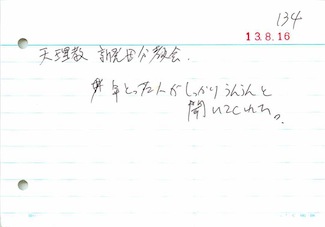 134
13.8.16
天理教 分教会.
年とった人がしっかりうんうんと
聞いてくれた。